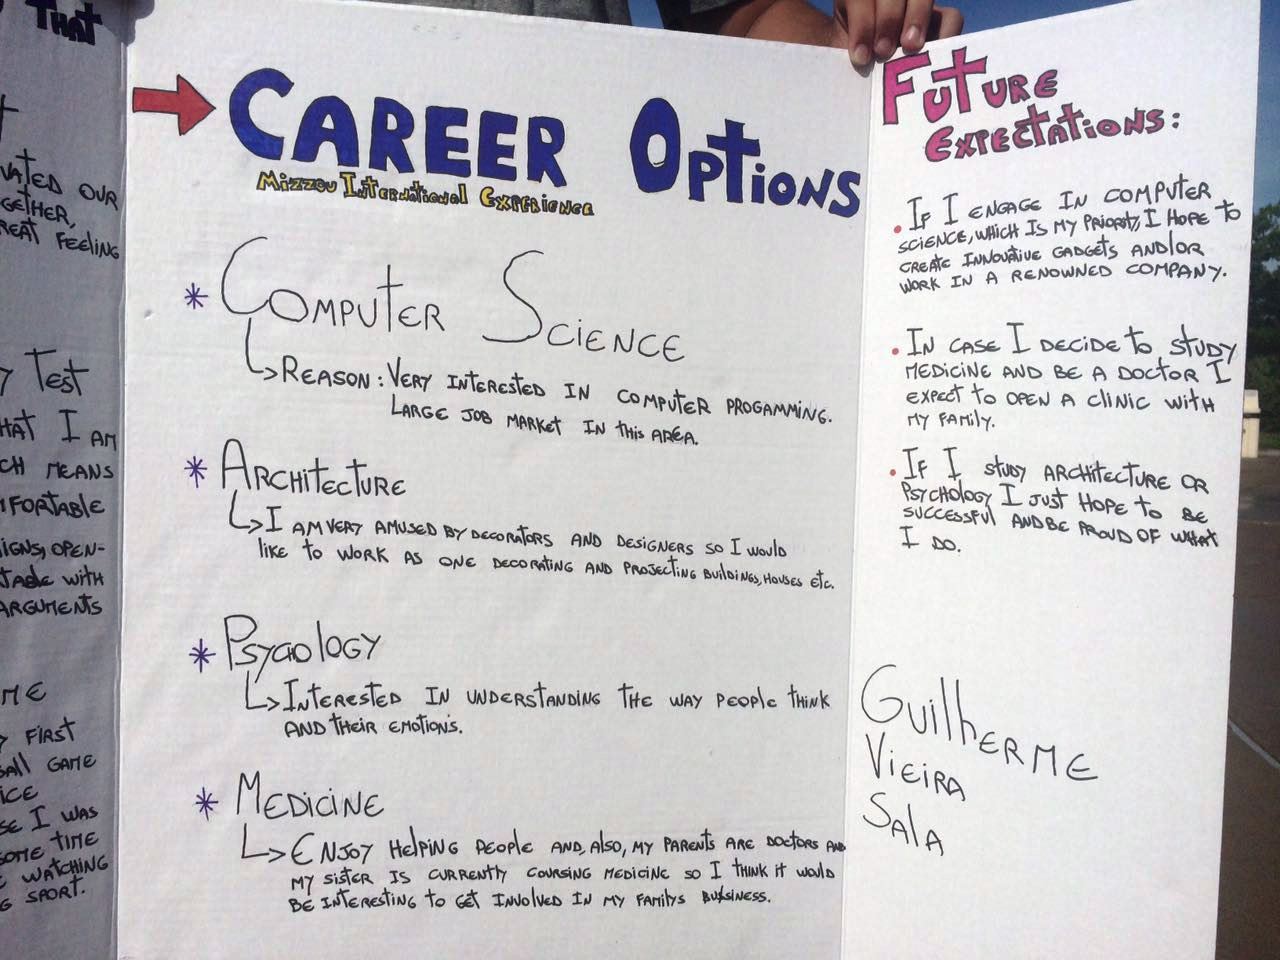 THAT
VATED OUR
GETHER,
REAT FEELING
Y TEST
HAT I AM
CH MEANS
MFORTABLE
IGNS, OPEN-
TABLE WITH
ARGUMENTS
ME
Y FIRST
BALL GAME
ICE
SE I WAS
SOME TIME
E WATCHING
G SPORT.
CAREER OPTIONS
MIZZOU INTERNATIONAL EXPERIENCE
* COMPUTER SCIENCE
REASON: VERY INTERESTED IN COMPUTER PROGAMMING.
LARGE JOB MARKET IN THIS AREA.
* ARCHITECTURE
I AM VERY AMUSED BY DECORATORS AND DESIGNERS SO I WOULD
LIKE TO WORK AS ONE DECORATING AND PROJECTING BUILDINGS, HOUSES ETC.
* PSYCOLOGY
INTERESTED IN UNDERSTANDING THE WAY PEOPLE THINK
AND THEIR EMOTIONS.
* MEDICINE
ENJOY HELPING PEOPLE AND, ALSO, MY PARENTS ARE DOCTORS AND
MY SISTER IS CURRENTLY COURSING MEDICINE SO I THINK IT WOULD
BE INTERESTING TO GET INVOLVED IN MY FAMILYS BUSSINESS.
FUTURE
EXPECTATIONS:
• IF I ENGAGE IN COMPUTER
SCIENCE, WHICH IS MY PRIORITY, I HOPE TO
CREATE INNOVATIVE GADGETS AND/OR
WORK IN A RENOWNED COMPANY.
• IN CASE I DECIDE TO STUDY
MEDICINE AND BE A DOCTOR I
EXPECT TO OPEN A CLINIC WITH
MY FAMILY.
• IF I STUDY ARCHITECTURE OR
PSYCHOLOGY I JUST HOPE TO BE
SUCCESSFUL AND BE PROUD OF WHAT
I DO.
GUILHERME
VIEIRA
SALA